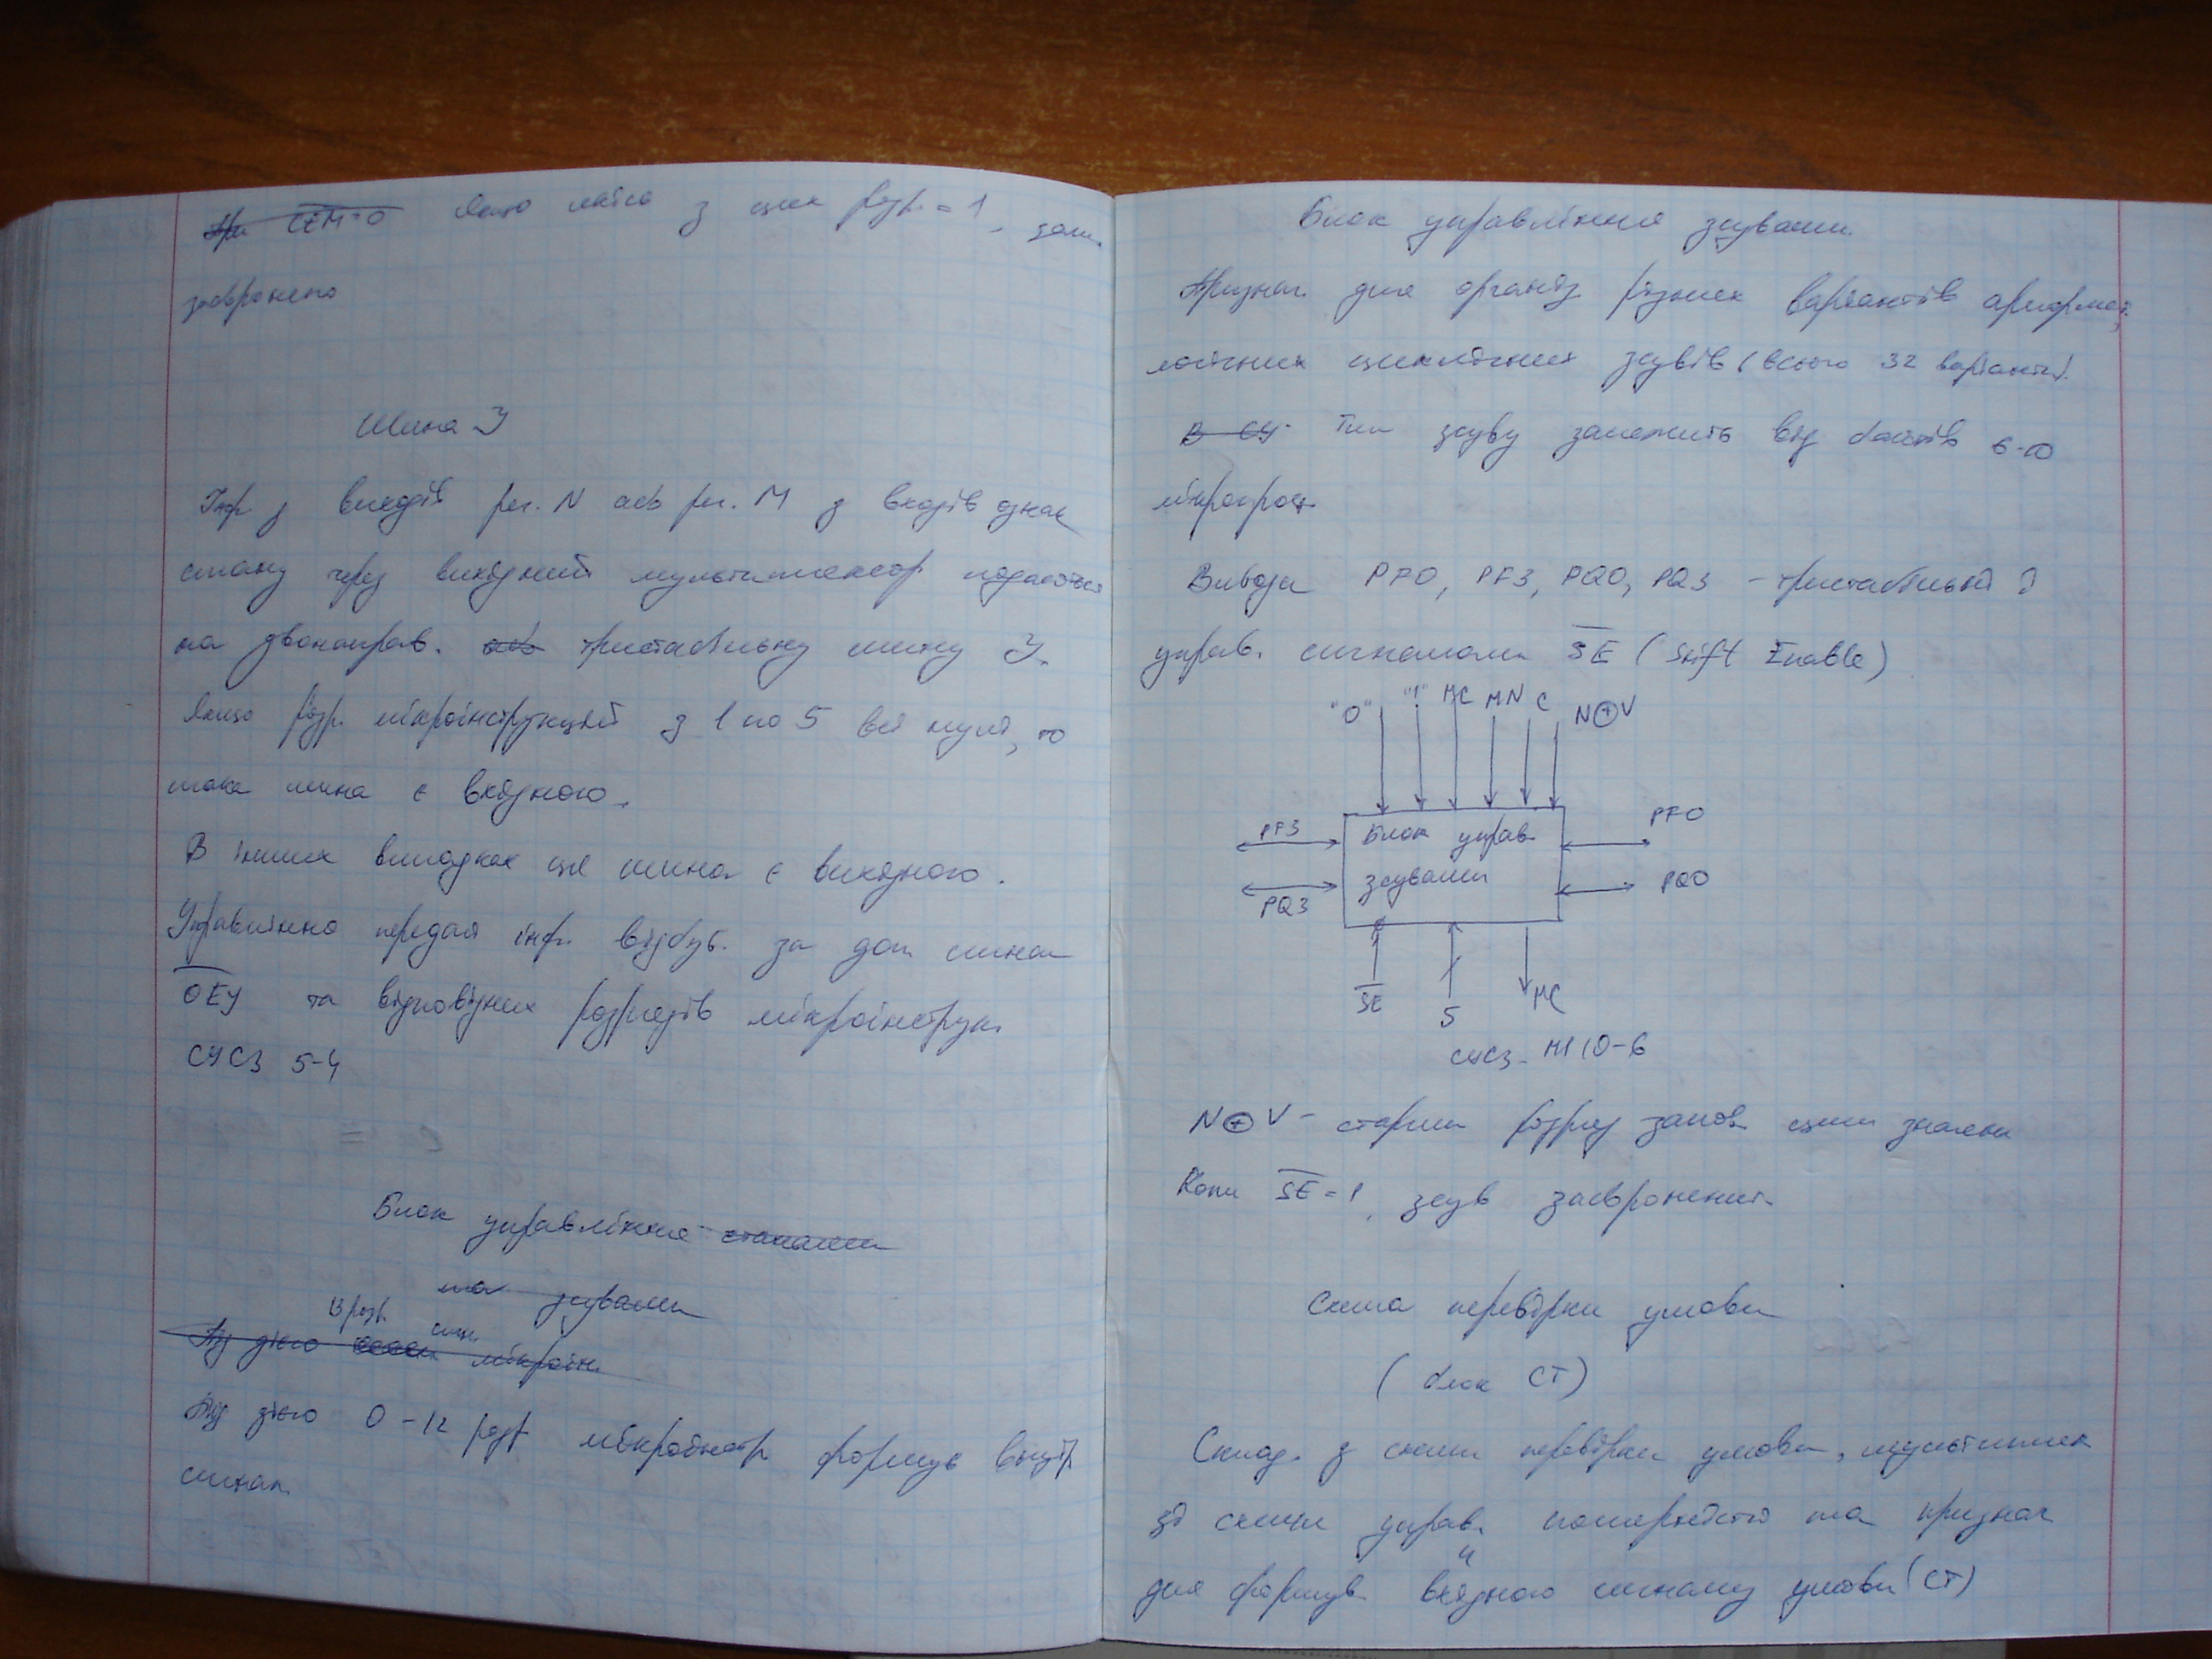 При CEM=0 Якщо якійсь з цих розр. = 1, зап.
заборонено
Шина Y
Інф. з виходів рег. N або рег. M з входів ознак
стану через вихідний мультиплексор подається
на двонаправ. або тристабільну шину Y.
Якщо розр. мікроінструкцій з 1 по 5 всі нулі, то
така шина є вхідною.
В інших випадках ця шина є вихідною.
Управління передая інф. відбув. за доп сигнал
OEY та відповідних розрядів мікроінструк.
СУСЗ 5-4
Блок управління станами
та зсувами
Під дією мікроін.
Під дією 0-12 розр мікроінстр формує внутр
сигнал.
Блок управління зсувами.
Признач. для організ різних варіантів арифмет.,
логічних циклічних зсувів (всього 32 варіанти).
В СУ Тип зсуву залежить від бітів 6-10
мікропрог.
Виводи PF0, PF3, PQ0, PQ3 - тристабільні і
управ. сигналами SE (Shift Enable)
"0" "1" MC MN C N⊕V
PF3 Блок управ. PF0
зсувами PQ0
PQ3
SE 5 MC
СУСЗ - МІ 10-6
N⊕V - старши розряд запов. цим значен
Коли SE=1, зсув заборонений.
Схема перевірки умови
(блок CT)
Склад. з схеми перевірки умови, мультиплек
зі схеми управ. полярністю та признач
для формув. вхідного сигналу умови (CT)